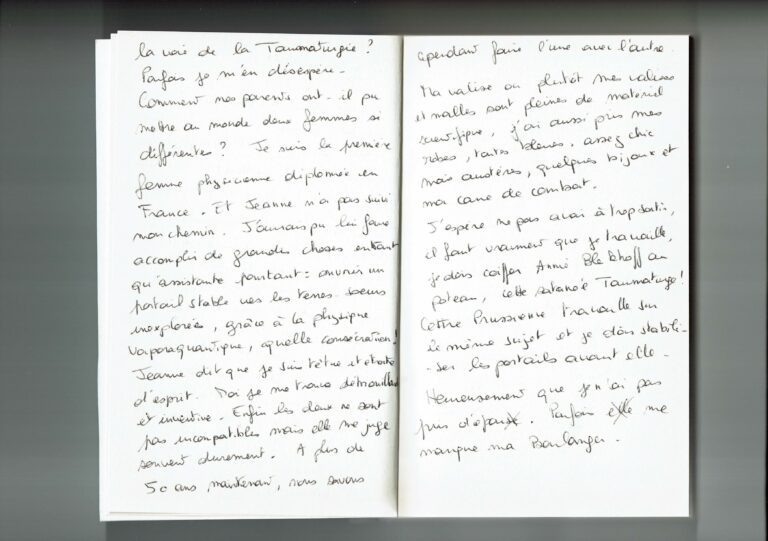 la voie de la Taumaturgie ?
Parfois je m'en désespère -
Comment mes parents ont - il pu
mettre au monde deux femmes si
différentes ? Je suis la première
femme physicienne diplômée en
France. Et Jeanne n'a pas suivi
mon chemin. J'aurais pu lui faire
accomplir de grandes choses en tant
qu'assistante pourtant : ouvrir un
portail stable vers les terres - soeurs
inexplorées, grâce à la physique
vaporaquantique, quelle consécration !
Jeanne dit que je suis têtue et étroite
d'esprit. Moi je me trouve débrouillarde
et inventive. Enfin les deux ne sont
pas incompatibles mais elle me juge
souvent durement. A plus de
50 ans maintenant, nous savons
cependant faire l'une avec l'autre.
Ma valise ou plutôt mes valises
et malles sont pleines de matériel
scientifique, j'ai aussi pris mes
robes, toutes bleues, assez chic
mais austères, quelques bijoux et
ma cane de combat.
J'espère ne pas avoir à trop sortir,
il faut vraiment que je travaille,
je dois coiffer Annie au
poteau, cette satanée Taumaturge !
Cette Prussienne travaille sur
le même sujet et je dois stabili-
- ser les portails avant elle -
Heureusement que je n'ai pas
pris d'épouse. Parfois elle me
manque ma Boulanger.